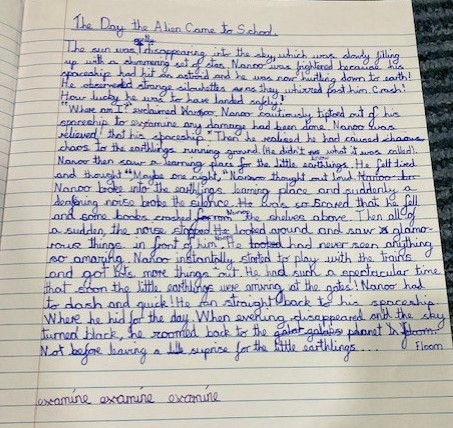 The Day the Alien Came to School.
The sun was disappearing into the sky, which was slowly filling
up with a shimmering set of stars. Nanoo was frightened because his
spaceship had hit an astoid and he was now hurtling down to earth!
He observed strange silouettes as he whirred past him. Crash!
How lucky he was to have landed safely!
"Where am I" exclaimed Nanoo. Nanoo cautiously tiptoed out of his
spaceship to examine any damage had been done. Nanoo was
relieved that his spaceship. Then he realised he had caused
chaos to the earthlings running around. (He didn't know what it was called).
Nanoo then saw a learning place for the little earthlings. He felt tired
and thought "Maybe one night," Nanoo thought out loud.
Nanoo broke into the earthlings learning place and suddenly a
deafening noise broke the silence. He was so scared that he fell
and some books crashed from the shelves above. Then all of
a sudden, the noise stopped. Nanoo looked around and saw glamo-
rous things in front of him. Nanoo had never seen anything
so amazing. Nanoo instantally started to play with the trains
and got lots more things out. He had such a spectricular time
that soon the little earthlings were arriving at the gates! Nanoo had
to dash and quick! He ran straight back to his spaceship.
Where he hid for the day. When evening disappeared and the sky
turned black, he zoomed back to the planet
Floom
Not before leaving a little suprise for the little earthlings....
examine examine examine